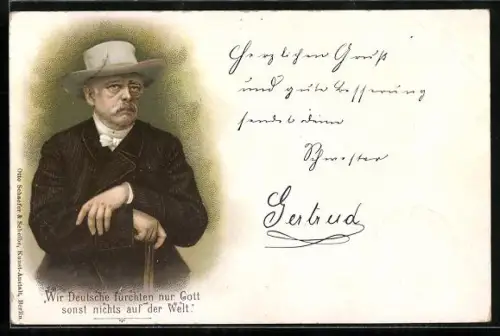 Herzlichen Gruß
und gute Besserung
sendet deine
Schwester
Gertrud
„Wir Deutsche fürchten nur Gott
sonst nichts auf der Welt.“
Otto Schaefer & Scheibe, Kunst-Anstalt, Berlin.